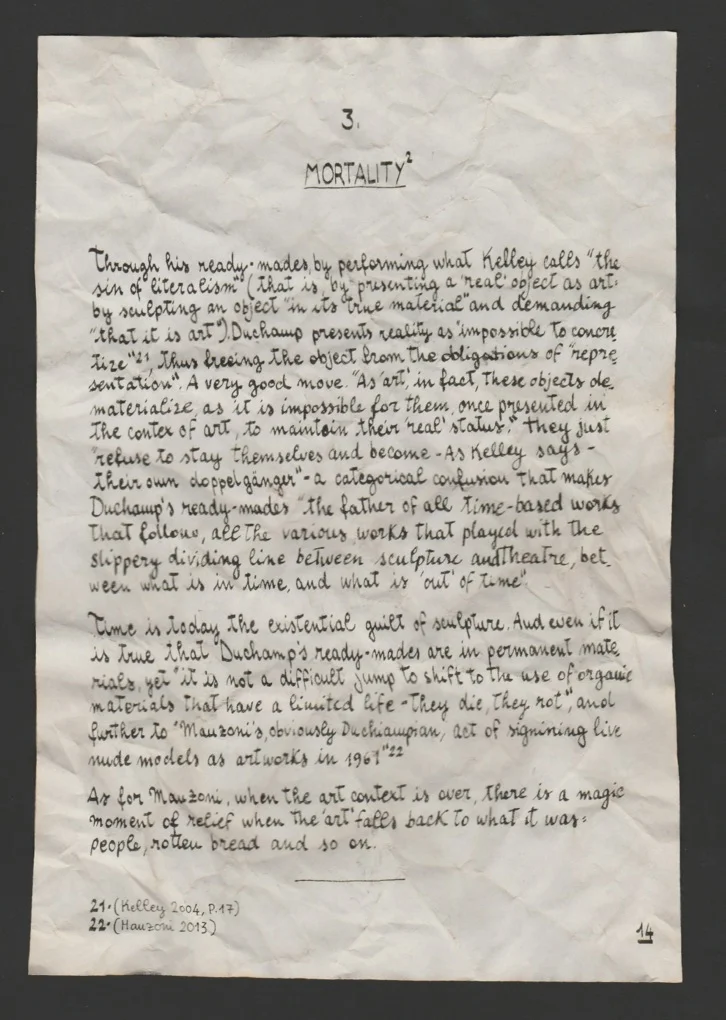 3.
MORTALITY²
Through his ready-made, by performing what Kelley calls "the
sin of literalism" (that is, by presenting a 'real' object as art-
by sculpting an object "in its true material" and demanding
"that it is art"). Duchamp presents reality as 'impossible to concre
tize"²¹, thus freeing the object from the obligations of "repre
sentation". A very good move. "As 'art', in fact, these objects de
materialize, as it is impossible for them, once presented in
the contex of art, to maintain their 'real' status." They just
"refuse to stay themselves and become - As Kelley says -
their own doppelgänger" - a categorical confusion that makes
Duchamp's ready-mades "the father of all time-based works
that follow, all the various works that played with the
slippery dividing line between sculpture and theatre, bet
ween what is in time, and what is 'out' of time".
Time is today the existential guilt of sculpture. And even if it
is true that Duchamp's ready-mades are in permanent mate
rials, yet "it is not a difficult jump to shift to the use of organic
materials that have a limited life - they die, they rot", and
further to "Manzoni's, obviously Duchiampian, act of signining live
nude models as artworks in 1961"²²
As for Manzoni, when the art context is over, there is a magic
moment of relief when the 'art' falls back to what it was:
people, rotten bread and so on.
21. (Kelley 2004, P.17)
22. (Manzoni 2013)
14